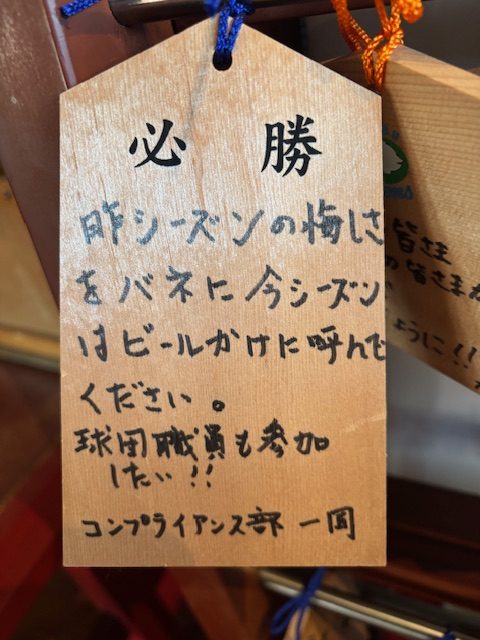 必勝
昨シーズンの悔しさ
をバネに今シーズン
はビールかけに呼んで
ください。
球団職員も参加
したい!!
コンプライアンス部 一岡
皆さま
の皆さまが
ように!!